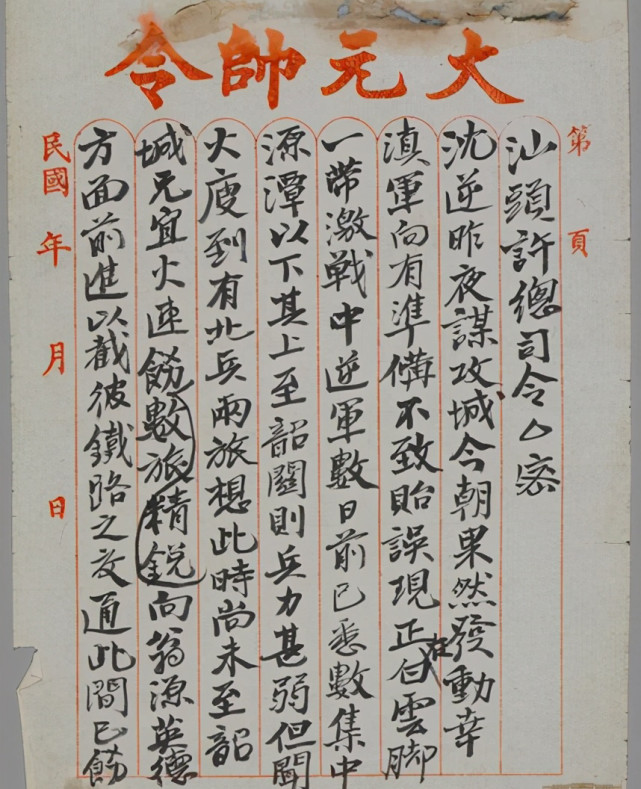 大元帥令
第 頁
汕頭許總司令△密
沈逆昨夜謀攻城今朝果然發動幸
滇軍向有準備不致貽誤現正在雲脚
一帶激戰中逆軍數日前已悉數集中
源潭以下其上至韶關則兵力甚弱但聞
大庾到有北兵兩旅想此時尚未至韶
城兄宜火速飭數旅精銳向翁源英德
方面前進以截彼鐵路之交通此間已飭
民國 年 月 日